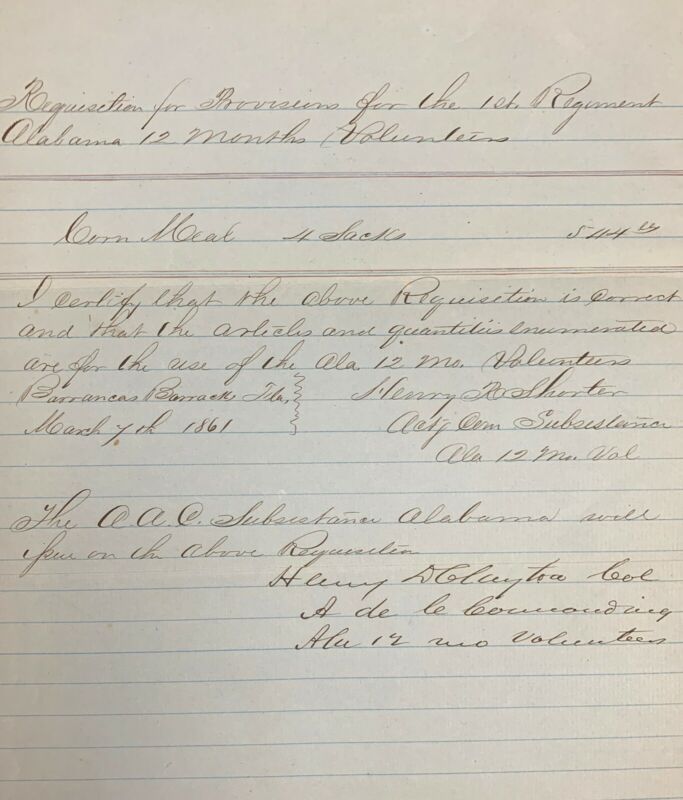 Requisition for Provisions for the 1st. Regiment
Alabama 12 Months Volunteers
Corn Meal 4 Sacks 544 lbs
I certify that the above Requisition is correct
and that the articles and quantities enumerated
are for the use of the Ala. 12 Mo. Volunteers
Barrancas Barracks Fla, Henry R Shorter
March 7th 1861 Actg Com Subsistance
Ala 12 Mo. Vol
The A. A. C. Subsistance Alabama will
issue on the above Requisition
Henry D Clayton Col
A de Commanding
Ala 12 mo Volunteers